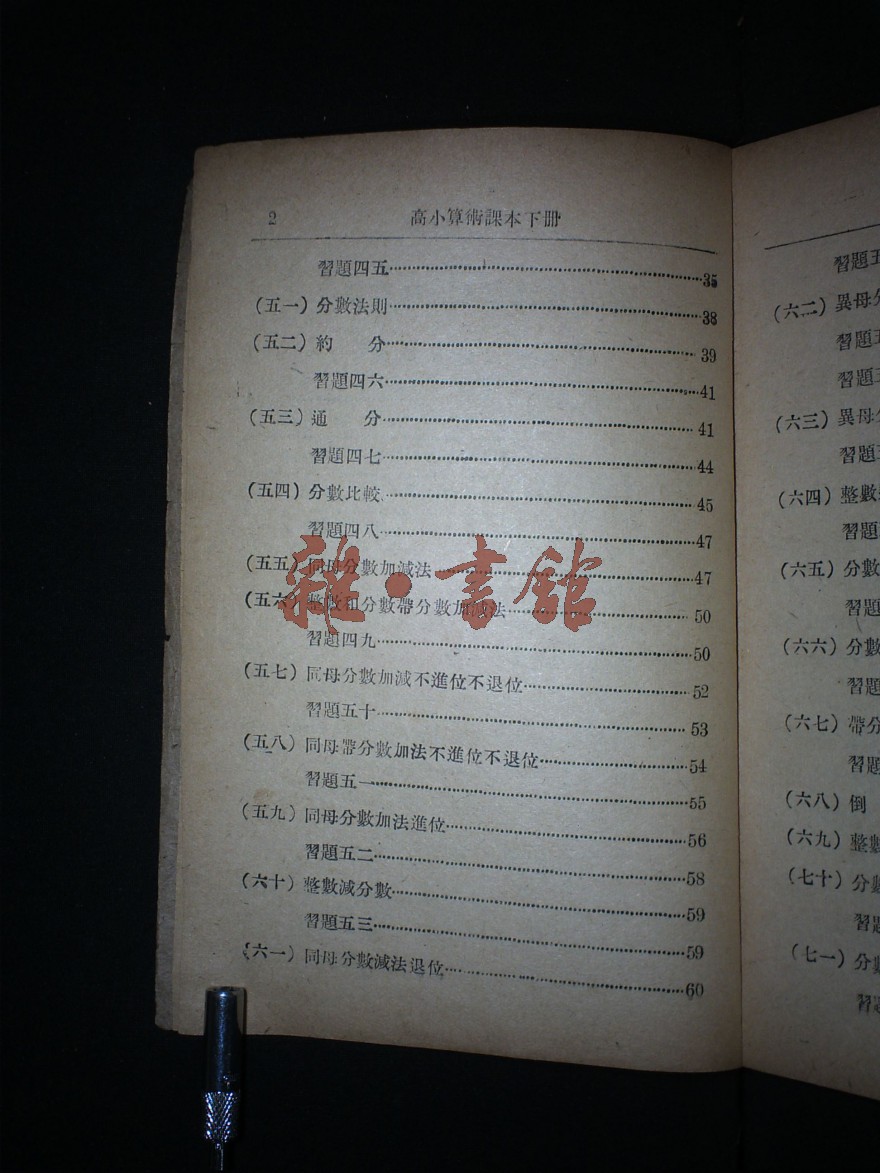 2 高小算術課本下册
習題四五 35
(五一) 分數法則 38
(五二) 約 分 39
習題四六 41
(五三) 通 分 41
習題四七 44
(五四) 分數比較 45
習題四八 47
(五五) 同母分數加減法 47
(五六) 整數和分數帶分數加減法 50
習題四九 50
(五七) 同母分數加減不進位不退位 52
習題五十 53
(五八) 同母帶分數加法不進位不退位 54
習題五一 55
(五九) 同母分數加法進位 56
習題五二 58
(六十) 整數減分數 59
習題五三 59
(六一) 同母分數減法退位 60
雜·書館
習題五
(六二) 異母分
習題
習題
(六三) 異母分
習題
(六四) 整數
習題
(六五) 分數
習題
(六六) 分數
習題
(六七) 帶分
習題
(六八) 倒
(六九) 整數
(七十) 分數
習題
(七一) 分數
習題